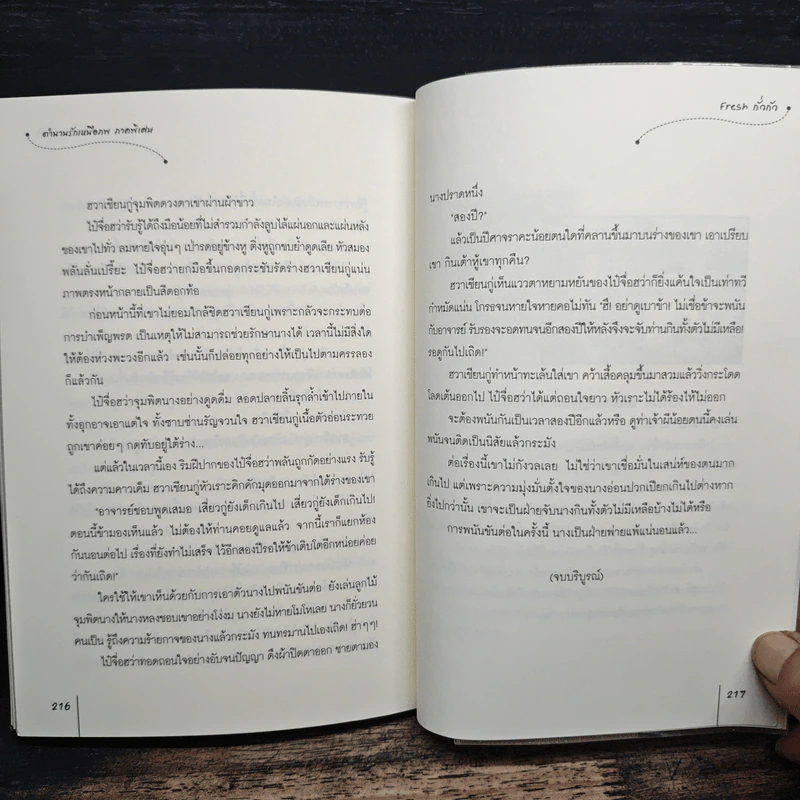 ตำนานรักเหนือภพ ภาคพิเศษ
ฮวาเชียนกู่จุมพิตดวงตาเขาผ่านผ้าขาว
ไป๋จื่อฮว่ารับรู้ได้ถึงมือน้อยที่ไม่สำรวมกำลังลูบไล้แผ่นอกและแผ่นหลัง
ของเขาไปทั่ว ลมหายใจอุ่นๆ เป่ารดอยู่ข้างหู ติ่งหูถูกขบย้ำดูดเลีย หัวสมอง
พลันลั่นเปรี๊ยะ ไป๋จื่อฮว่ายกมือขึ้นกอดกระชับรัดร่างฮวาเชียนกู่แน่น
ภาพตรงหน้ากลายเป็นสีดอกท้อ
ก่อนหน้านี้ที่เขาไม่ยอมใกล้ชิดฮวาเชียนกู่เพราะกลัวจะกระทบต่อ
การบำเพ็ญพรต เป็นเหตุให้ไม่สามารถช่วยรักษานางได้ เวลานี้ไม่มีสิ่งใด
ให้ต้องห่วงพะวงอีกแล้ว เช่นนั้นก็ปล่อยทุกอย่างให้เป็นไปตามครรลอง
ก็แล้วกัน
ไป๋จื่อฮว่าจุมพิตนางอย่างดูดดื่ม สอดปลายลิ้นรุกล้ำเข้าไปภายใน
ทั้งอุกอาจเอาแต่ใจ ทั้งซาบซ่านรัญจวนใจ ฮวาเชียนกู่เนื้อตัวอ่อนระทวย
ถูกเขาค่อยๆ กดทับอยู่ใต้ร่าง...
แต่แล้วในเวลานี้เอง ริมฝีปากของไป๋จื่อฮว่าพลันถูกกัดอย่างแรง รับรู้
ได้ถึงความคาวเค็ม ฮวาเชียนกู่หัวเราะคิกคักมุดออกมาจากใต้ร่างของเขา
"อาจารย์ชอบพูดเสมอ เสี่ยวกู่ยังเด็กเกินไป เสี่ยวกู่ยังเด็กเกินไป!
ตอนนี้ข้ามองเห็นแล้ว ไม่ต้องให้ท่านคอยดูแลแล้ว จากนี้เราก็แยกห้อง
กันนอนต่อไป เรื่องที่ยังทำไม่เสร็จ ไว้อีกสองปีรอให้ข้าเติบโตอีกหน่อยค่อย
ว่ากันเถิด!"
ใครใช้ให้เขาเห็นด้วยกับการเอาตัวนางไปพนันขันต่อ ยังเล่นลูกไม้
จุมพิตนางให้นางหลงชอบเขาอย่างโง่งม นางยังไม่หายโมโหเลย นางก็ยั่วยวน
คนเป็น รู้ถึงความร้ายกาจของนางแล้วกระมัง ทนทรมานไปเองเถิด! ฮ่าๆๆ!
ไป๋จื่อฮว่าทอดถอนใจอย่างอับจนปัญญา ดึงผ้าปิดตาออก ชายตามอง
216
Fresh กั่วกั่ว
นางปราดหนึ่ง
"สองปี?"
แล้วเป็นปีศาจราคะน้อยตนใดที่คลานขึ้นมาบนร่างของเขา เอาเปรียบ
เขา กินเต้าหู้เขาทุกคืน?
ฮวาเชียนกู่เห็นแววตาหยามหยันของไป๋จื่อฮว่าก็ยิ่งแค้นใจเป็นเท่าทวี
กำหมัดแน่น โกรธจนหายใจหายคอไม่ทัน "ฮึ! อย่าดูเบาข้า! ไม่เชื่อข้าจะพนัน
กับอาจารย์ รับรองจะอดทนจนอีกสองปีให้หลังจึงจะจับท่านกินทั้งตัวไม่มีเหลือ!
รอดูกันไปเถิด!"
ฮวาเชียนกู่ทำหน้าทะเล้นใส่เขา คว้าเสื้อคลุมขึ้นมาสวมแล้ววิ่งกระโดด
โลดเต้นออกไป ไป๋จื่อฮว่าได้แต่ถอนใจยาว หัวเราะไม่ได้ร้องไห้ไม่ออก
จะต้องพนันกันเป็นเวลาสองปีอีกแล้วหรือ ดูท่าเจ้าผีน้อยตนนี้คงเล่น
พนันจนติดเป็นนิสัยแล้วกระมัง
ต่อเรื่องนี้เขาไม่กังวลเลย ไม่ใช่ว่าเขาเชื่อมั่นในเสน่ห์ของตนมาก
เกินไป แต่เพราะความมุ่งมั่นตั้งใจของนางอ่อนปวกเปียกเกินไปต่างหาก
ยิ่งไปกว่านั้น เขาจะเป็นฝ่ายจับนางกินทั้งตัวไม่มีเหลือบ้างไม่ได้หรือ
การพนันขันต่อในครั้งนี้ นางเป็นฝ่ายพ่ายแพ้แน่นอนแล้ว...
(จบบริบูรณ์)
217